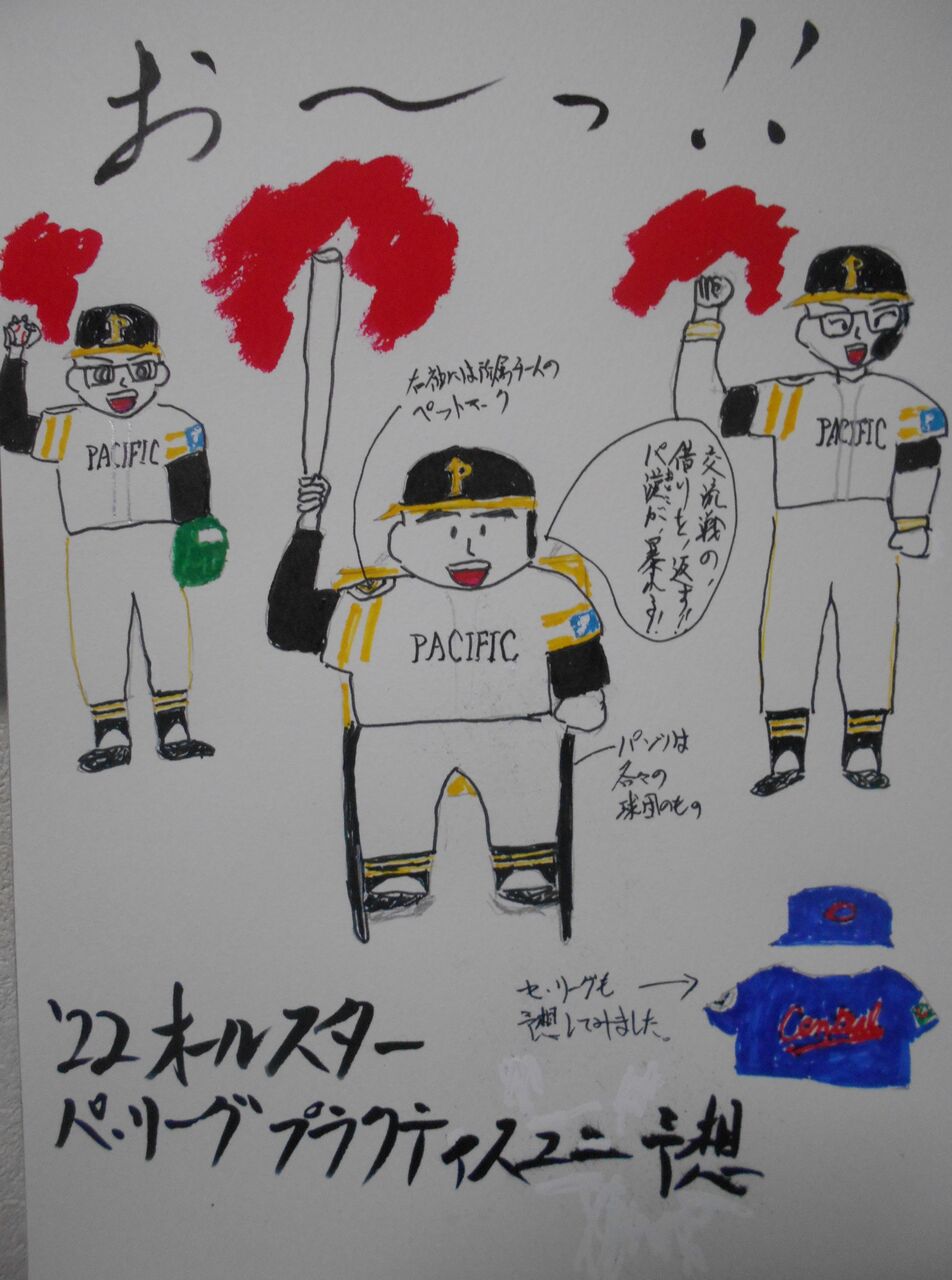 お〜っ!!
P
P
P
PACIFIC
PACIFIC
PACIFIC
右袖には所属チームの
ペットマーク
交流戦の、
借りを、返す!!
パ波が、暴れる!
パンツは
各々の
球団のもの
C
セ・リーグも
予想してみました。
Central
'22 オールスター
パ・リーグ プラクティスユニ 予想